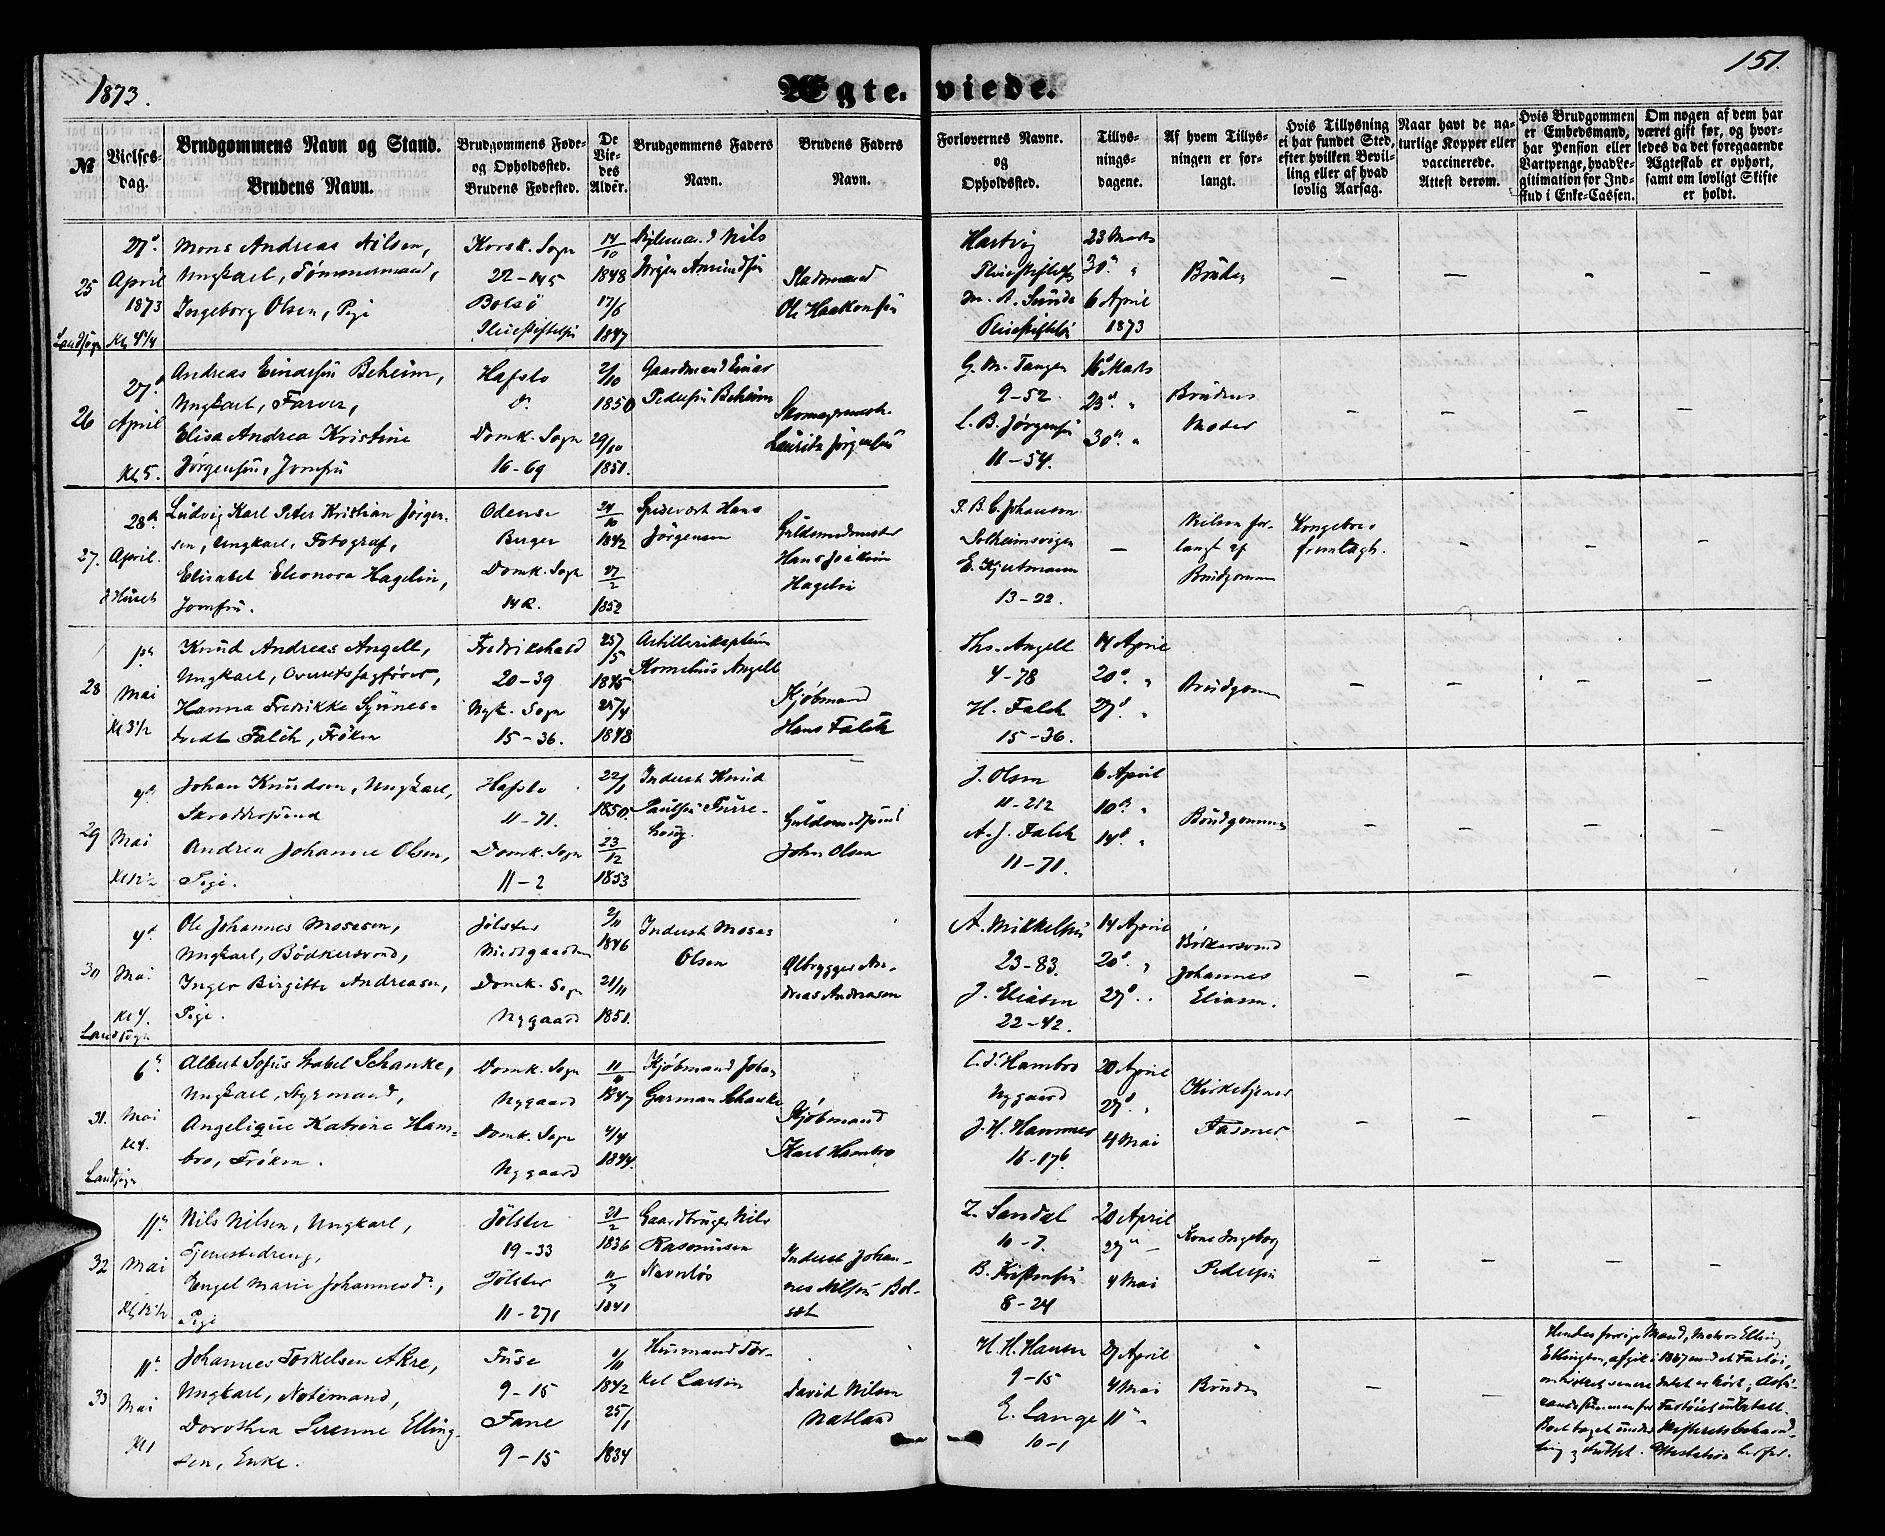 1873.
Ægteviede.
151.
№
Vielses-
dag.
Brudgommens Navn og Stand.
Brudens Navn.
Brudgommens Føde-
og Opholdssted.
Brudens Fødested.
De
Vie-
des
Alder.
Brudgommens Faders
Navn.
Brudens Faders
Navn.
Forlovernes Navne.
og
Opholdssted.
Tillys-
nings-
dagene.
Af hvem Tillys-
ningen er for-
langt.
Hvis Tillysning
ei har fundet Sted,
efter hvilken Bevil-
ling eller af hvad
lovlig Aarsag.
Naar havt de na-
turlige Kopper eller
vaccinerede.
Attest derom.
Hvis Brudgommen
er Embedsmand,
har Pension eller
Vartpenge, hvad Le-
gitimation for Ind-
skud i Enke-Cassen.
Om nogen af dem har
været gift før, og hvor-
ledes da det foregaaende
Ægteskab er ophørt,
samt om lovligt Skifte
er holdt.
25
27d
April
1873
Landsogn Kl 4 1/4
Mons Andreas Nilsen,
Ungkarl, Tømmermand,
Ingeborg Olsen, Pige
Korsk. Sogn
22-145
Bolsø
14/10
1848
17/6
1847
Nils
Jørgen Amundsen
Stadsmand
Ole Haakonsen
Hartvig
M. A. Sunde
23 Marts
30te "
6 April
1873
Bruden
26
27d
April
Kl 5.
Andreas Eindesen Beheim,
Ungkarl, Farver,
Elisa Andrea Kristine
Jørgensen, Jomfru
Hafslo
Domk. Sogn
16-69
2/10
1850
29/10
1851.
Gaardmand Einar
Pedersen Beheim
Skomagermest.
Lauritz Jørgensen
G. M. Tangen
9-52.
L. B. Jørgensen
11-54.
16d Marts
23d "
30te "
Brudens
Moder
27.
28de
April.
i Huset
Ludvig Karl Peter Kristian Jørgen-
sen, Ungkarl, Fotograf,
Elisabet Eleonora Hagelin,
Jomfru.
Odense
Bergen
Domk. Sogn
14 R.
24/10
1842
27/2
1852
Hans
Jørgensen
Guldsmedmester
Hans Joakim
Hagelin
P. B. C. Johansen
Solheimsvigen
E. Kjertmann
13-22.
Vielsen for-
langt af
Brudgommen
Kongebrev
fremlagt.
28
1ste
Mai
Kl 3 1/2
Knud Andreas Angell,
Ungkarl, Overretssagfører,
Hanna Fredrikke Synnes-
tvedt Falch, Frøken
Fredrikshald
20-39
Nyk. Sogn
15-36.
25/5
1845
25/4
1848
Artillerikaptein
Kornelius Angell
Kjøbmand
Hans Falch
Ths. Angell
4-78
H. Falch
15-36.
14 April
20d "
27d "
Brudgommen
29
4d
Mai
Kl 12 1/2
Johan Knudsen, Ungkarl,
Skræddersvend
Andrea Johanne Olsen,
Pige.
Hafslo
11-71.
Domk. Sogn
11-2
22/1
1850.
23/12
1853
Inderst Knud
Paulsen Turre-
houg.
Guldsmedsvend
John Olsen
J. Olsen
11-212
A. J. Falch
11-71.
6 April
10de "
14d "
Brudgommen
30
4d
Mai
Kl 4.
Landsogn
Ole Johannes Mosesen,
Ungkarl, Bødkersvend,
Inger Birgitte Andreasen,
Pige.
Jølster
Domk. Sogn
Nygaard
2/11
1846
21/11
1851.
Inderst Moses
Olsen
Ølbrygger An-
dreas Andreasen
A. Mikkelsen
23-83.
J. Eliasen
22-42.
14 April
20d "
27d "
Bødkersvend
Johannes
Eliasen.
31.
6te
Mai
Kl 4.
Landsogn
Albert Sofus Stabel Schanke,
Ungkarl, Styrmand,
Angelique Katrine Ham-
bro, Frøken.
Domk. Sogn
Nygaard
Domk. Sogn
Nygaard
1847
4/4
1844.
Kjøbmand Johan
Garman Schanke
Kjøbmand
Karl Hambro
C. D. Hambro
Nygaard
J. H. Hammer
16-17b
20 April
27d "
4 Mai
Kirketjener
Fasmer
32
11te
Mai
Kl 12 1/2
Nils Nilsen, Ungkarl,
Tjenestedreng,
Engel Marie Johannesdr.,
Pige
Jølster
19-33
Jølster
11-271
21/2
1836
11/7
1841
Gaardbruger Nils
Rasmussen
Navnløs
Inderst Johan-
nes Nilsen Bol-
sæt
Z. Sandal
10-7.
B. Kristensen
8-24
20 April
27de "
4 Mai
Kone Ingeborg
Pedersen
33
11te
Mai
Kl 1
Johannes Torkelsen Akre,
Ungkarl, Notemand,
Dorothea Serenne Elling-
sen, Enke.
Fuse
9-15
Fane
9-15
2/11
1842
25/1
1834
Husmand Tor-
kel Larsen
David Nilsen
Natland
H. H. Hansen
9-15
E. Lange
10-1
27 April
4 Mai
11te "
Bruden
Hendes forrige Mand, Matros Elling
Ellingsen, afgik i 1867 med et Fartøi,
om hvilket senere Intet er hørt;